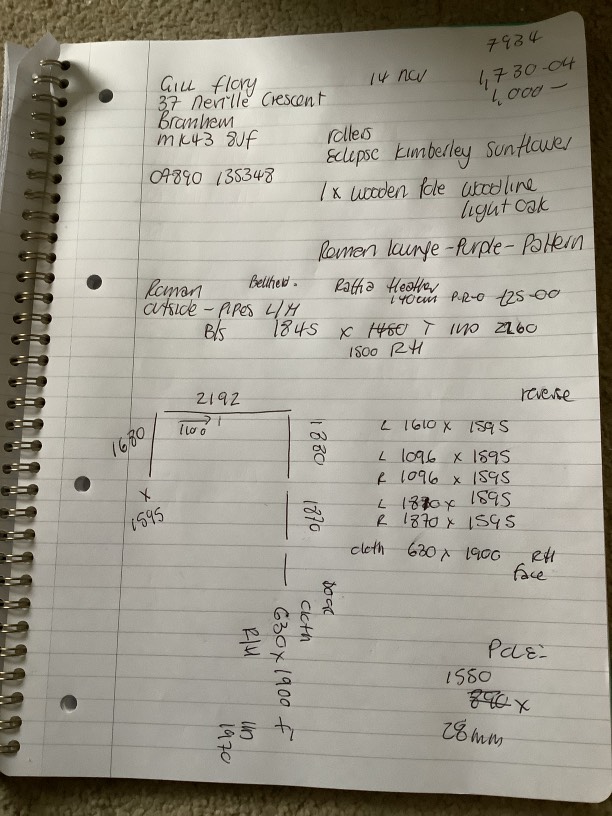 7934
Gill flory 14 nov 1,730-04
37 neville Crescent 1,000 -
Bromhem
MK43 8Uf rollers
Eclipse Kimberley Sunflower
09890 135348
1 x wooden Pole woodline
light oak
Roman lounge - Purple - Pattern
Bellheld. Raffia Heather
Roman 140cm P-R-O £25-00
outside - PIPES L/H
B/S 1845 x 1480 T 1110 2260
1500 RH
reverse
2192
1680 1100 1880
x
1595 1870
L 1610 x 1595
L 1096 x 1595
R 1096 x 1595
L 1870 x 1595
R 1870 x 1595
cloth 630 x 1900 RH
face
cloth
630 x 1900 f
R/H
1970
Pole:-
1550
x
28mm